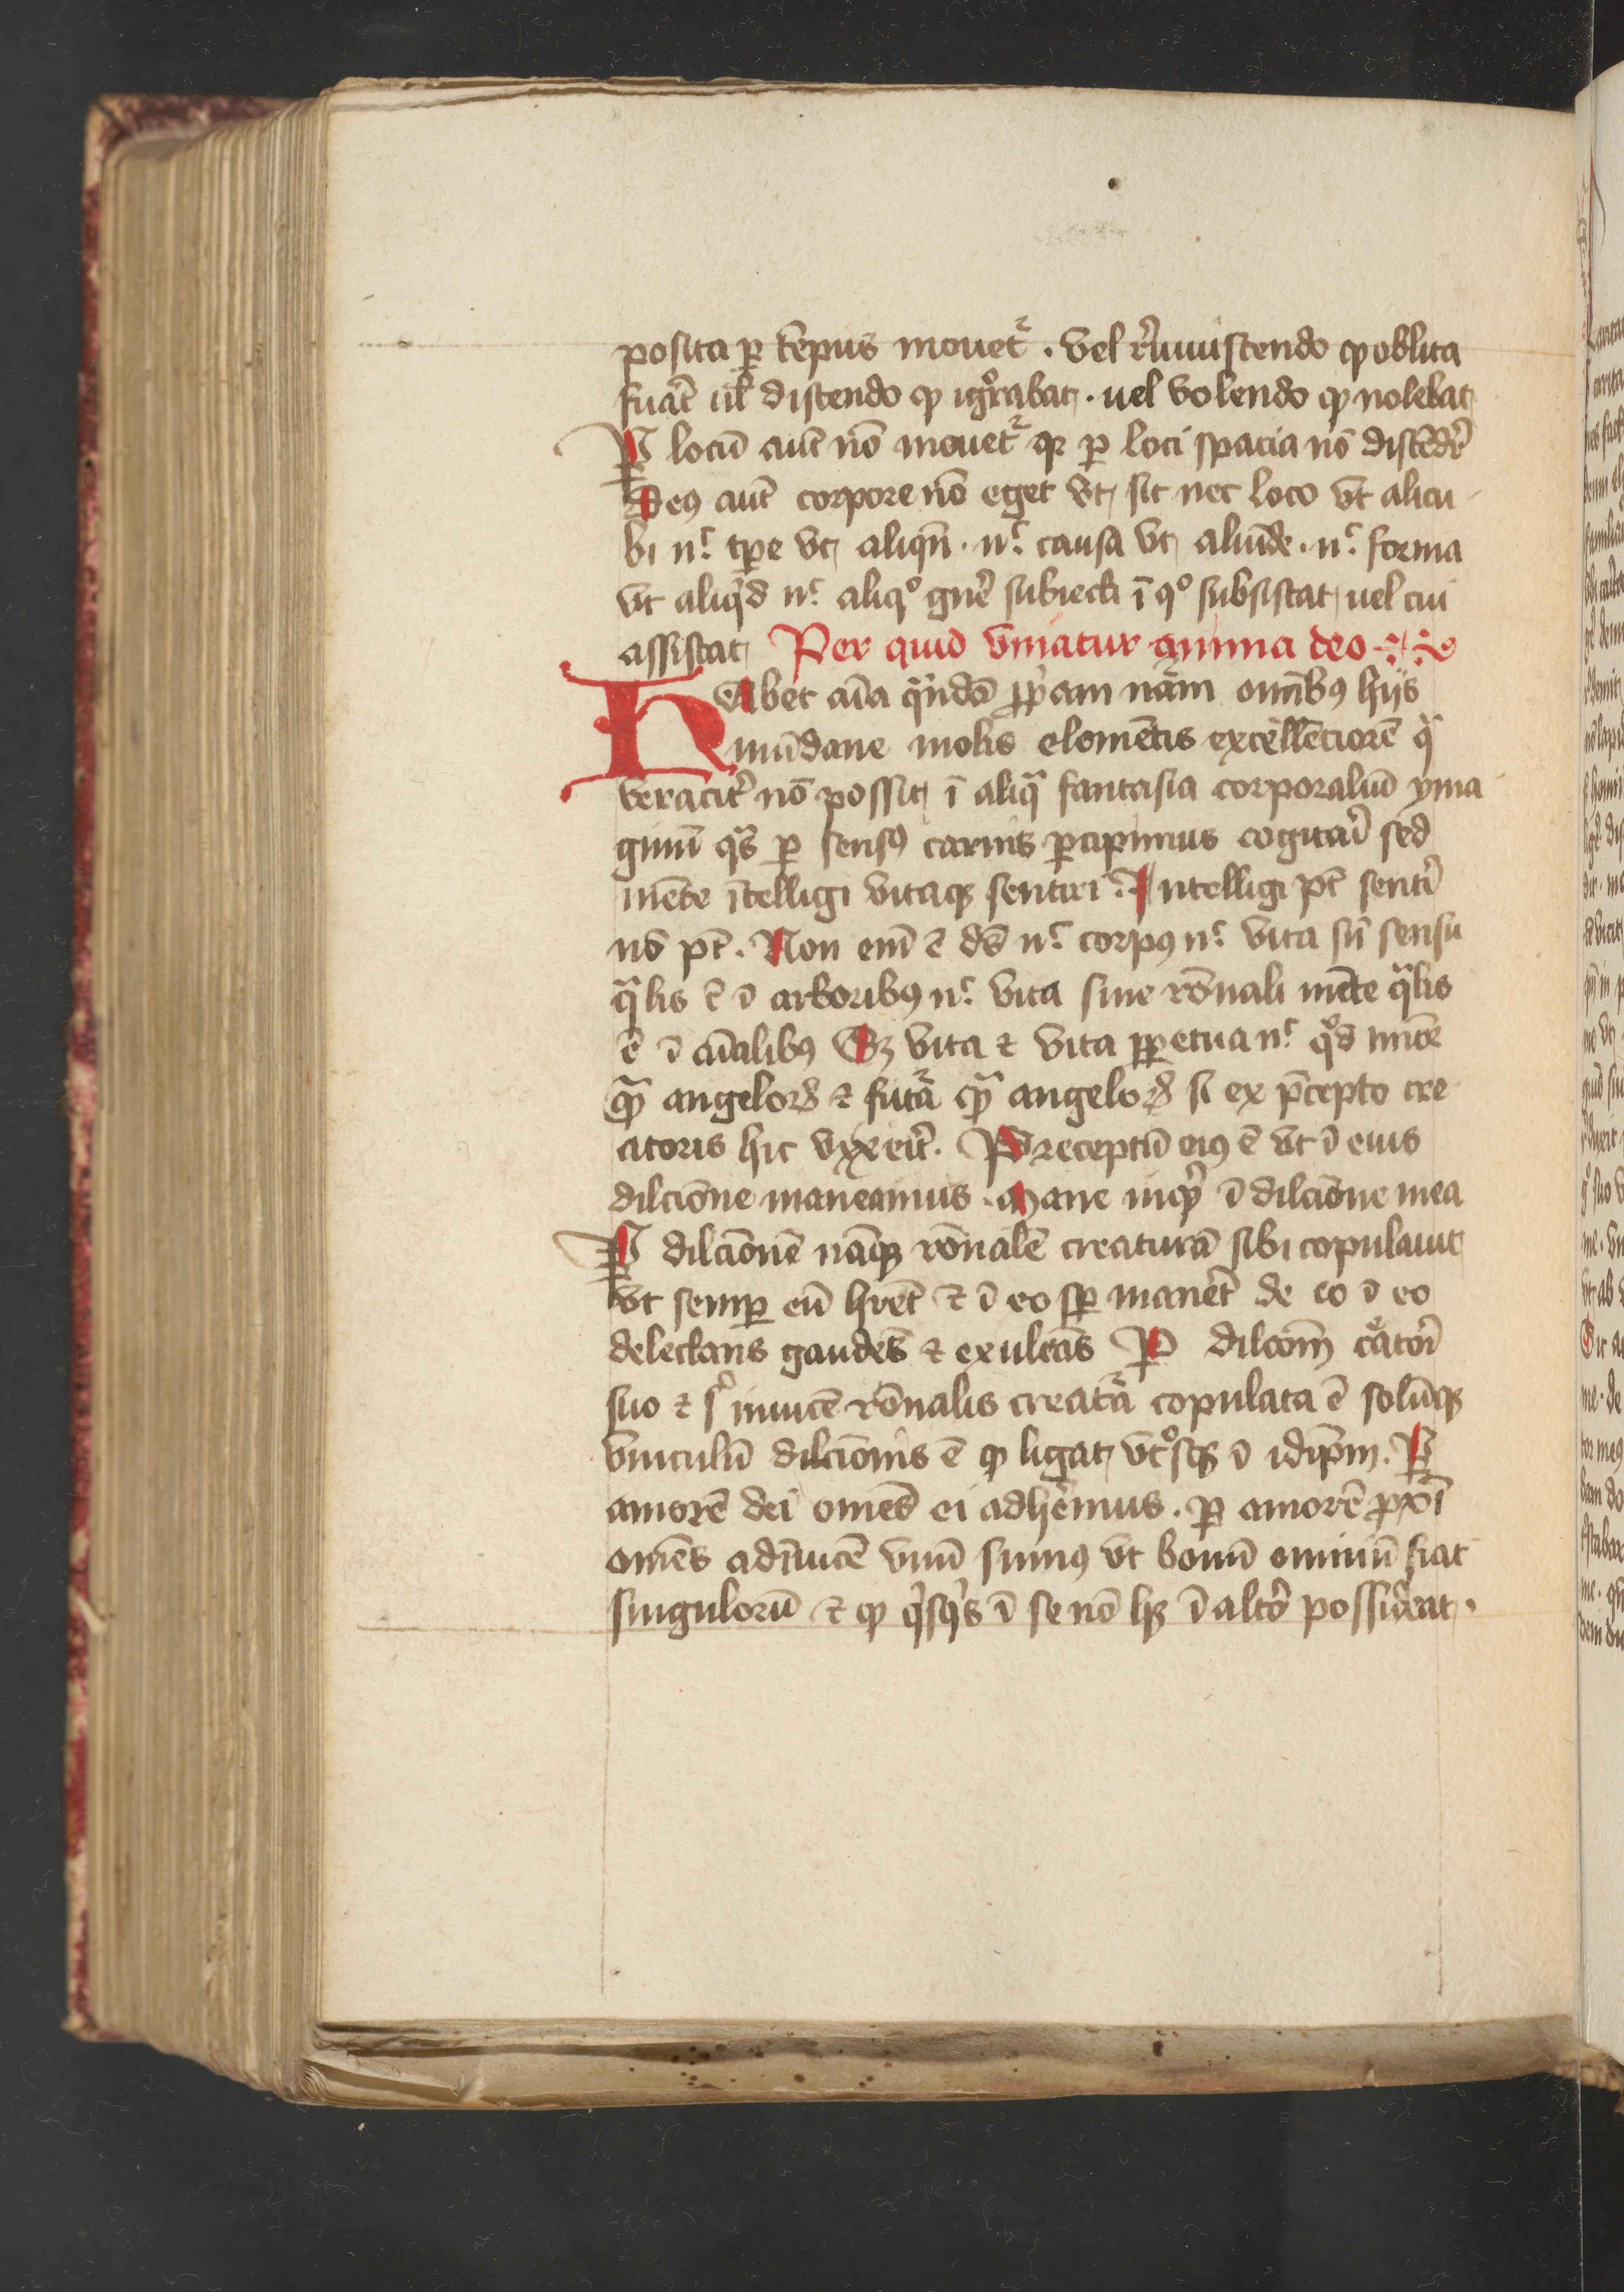 posita ꝑ te̅pus mouet᷑ . vel re̅miniscendo qꝫ oblita
fuat̅ ul̅ discendo qꝫ igͦrabat . uel volendo qꝫ nolebat
ꝑ locu̅ aut̅ no̅ mouet᷑ qꝛ ꝑ loci spacia no̅ diste̅dr̅
Deꝯ aut̅ corpore no̅ eget vt sit nec loco vt alicu
bi nͨ tp̅e vt aliqn̅ . nͨ causa vt aliu̅de . nͨ forma
vt aliqͥd nͨ aliqͦ gn̅e subiecti i̅ qͦ subsistat uel cui
assistat Per quid vniatur anima deo
HAbet ai̅a qͣnda̅ ꝓpͥam nãm omĩbꝯ hijs
mu̅dane molis eleme̅tis excelle̅ciore̅ qͣ
veracit̉ no̅ possit i̅ aliqͣ fantasia corporaliu̅ yma
ginu̅ qͣs ꝑ sensꝯ carnis ꝑcipimus cogitari̅ sed
me̅te i̅telligi vitaqꝫ sentiri . Intelligi pt̅ senti̅
no̅ pt̅ . Non eni̅ e̅ ds̅ nͨ corpꝯ nͨ vita sn̅ sensu
qͣlis e̅ i̅ arboribꝯ nͨ vita sine ro̅nali me̅te qͣlis
e̅ i̅ ai̅alibꝯ Sꝫ vita ⁊ vita ꝑpetua nͨ qͦd mi̅ꝰ
qͣ angeloꝝ ⁊ futͣa qͣ angeloꝝ si ex p̅cepto cre
atoris hic vixerit̅ . Preceptu̅ eiꝯ e̅ vt i̅ eius
dilcio̅ne maneamus . Mane inqͥt i̅ dilcio̅ne mea
ꝑ dilcio̅ne̅ na̅qꝫ ro̅nale̅ creatura̅ sibi copulauit
vt semꝑ eu̅ hr̅et ⁊ i̅ eo sꝑ manet̅ de eo i̅ eo
delectans gaude̅s ⁊ exulta̅s ꝑ dilcom̅ cͤatori̅
suo ⁊ sͥ inuice̅ ro̅nalis creatͣa copulata e̅ solu̅qꝫ
vinculu̅ dilcio̅nis e̅ qꝫ ligat vtͦsqꝫ i̅ idip̅m . ꝑ
amore̅ dei om̅es ei adhe̅mus . ꝑ amore̅ ꝓxi̅
om̅es adi̅uice̅ vnu̅ sumꝯ vt bonu̅ omniu̅ fiat
singuloru̅ ⁊ qꝫ qͥsqͥs i̅ se no̅ hꝫ i̅ alto̅ possideat .